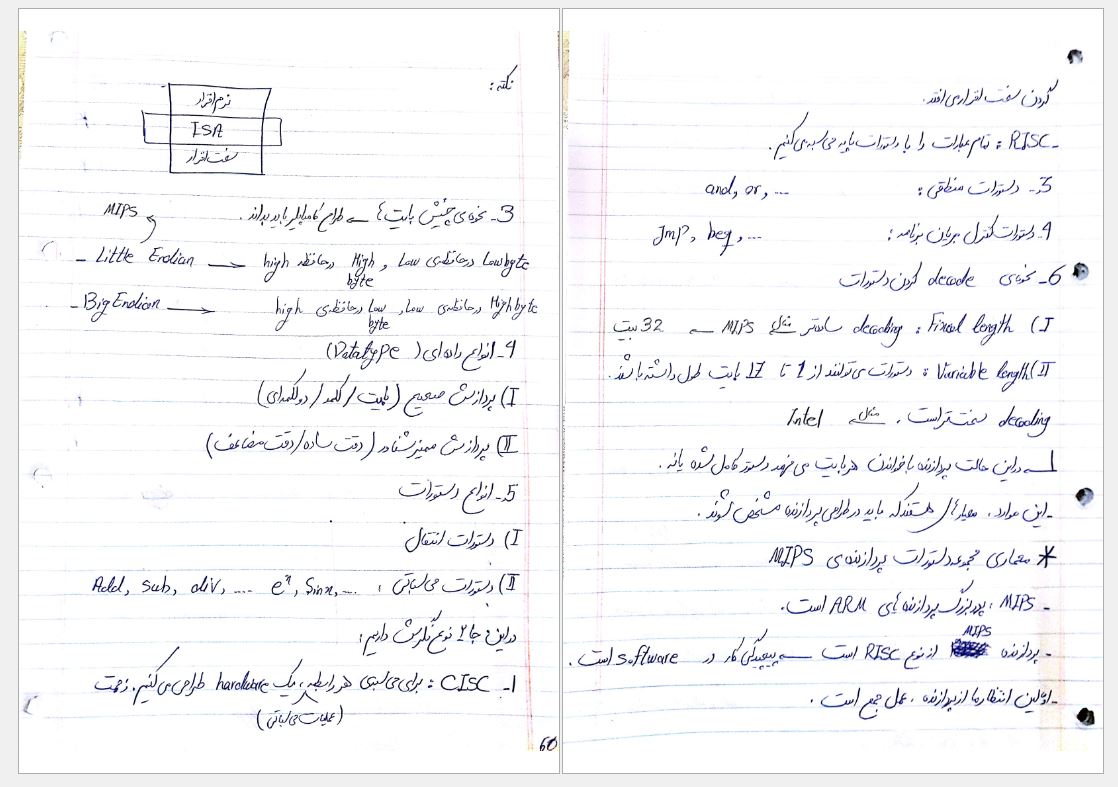 نکته:
نرم افزار
ISA
سخت افزار
3- نحوه‌ی چینش بایت‌ها → طراح کامپایلر باید بداند.
MIPS
- Little Endian → high درحافظه High byte , Low درحافظه‌ی Low byte
- Big Endian → high درحافظه‌ی Low byte , Low درحافظه‌ی High byte
4- انواع داده‌ای (Datatype)
I) پردازش صحیح (بایت/کلمه/دوکلمه‌ای)
II) پردازش ممیز شناور (دقت ساده/دقت مضاعف)
5- انواع دستورات
I) دستورات انتقال
II) دستورات محاسباتی: Add, sub, div, .... eˣ, Sinx, ....
در اینجا 2 نوع نگرش داریم:
1- CISC: برای محاسبه‌ی هر رابطه، یک hardware طراحی می‌کنیم. زحمت
(عملیات محاسباتی)
60
کردن سخت افزاری افتد.
- RISC: تمام عبارات را با دستورات پایه محاسبه می‌کنیم.
3- دستورات منطقی: and, or, ...
4- دستورات کنترل جریان برنامه: Jmp, beq, ...
6- نحوه‌ی decode کردن دستورات
I) Fixed length: decoding ساده‌تر مثل MIPS → 32 بیت
II) Variable length: دستورات می‌توانند از 1 تا 17 بایت طول داشته باشند.
decoding سخت‌تر است. مثل Intel
→ در این حالت پردازنده با خواندن هر بایت می‌فهمد دستور کامل شده یا نه.
- این موارد، معیارهایی هستند که باید در طراحی پردازنده مشخص شوند.
* معماری مجموعه دستورات پردازنده‌ی MIPS
- MIPS: پدربزرگ پردازنده‌های ARM است.
- پردازنده MIPS از نوع RISC است → پیچیدگی کار در software است.
- اولین انتظار ما از پردازنده، عمل جمع است.